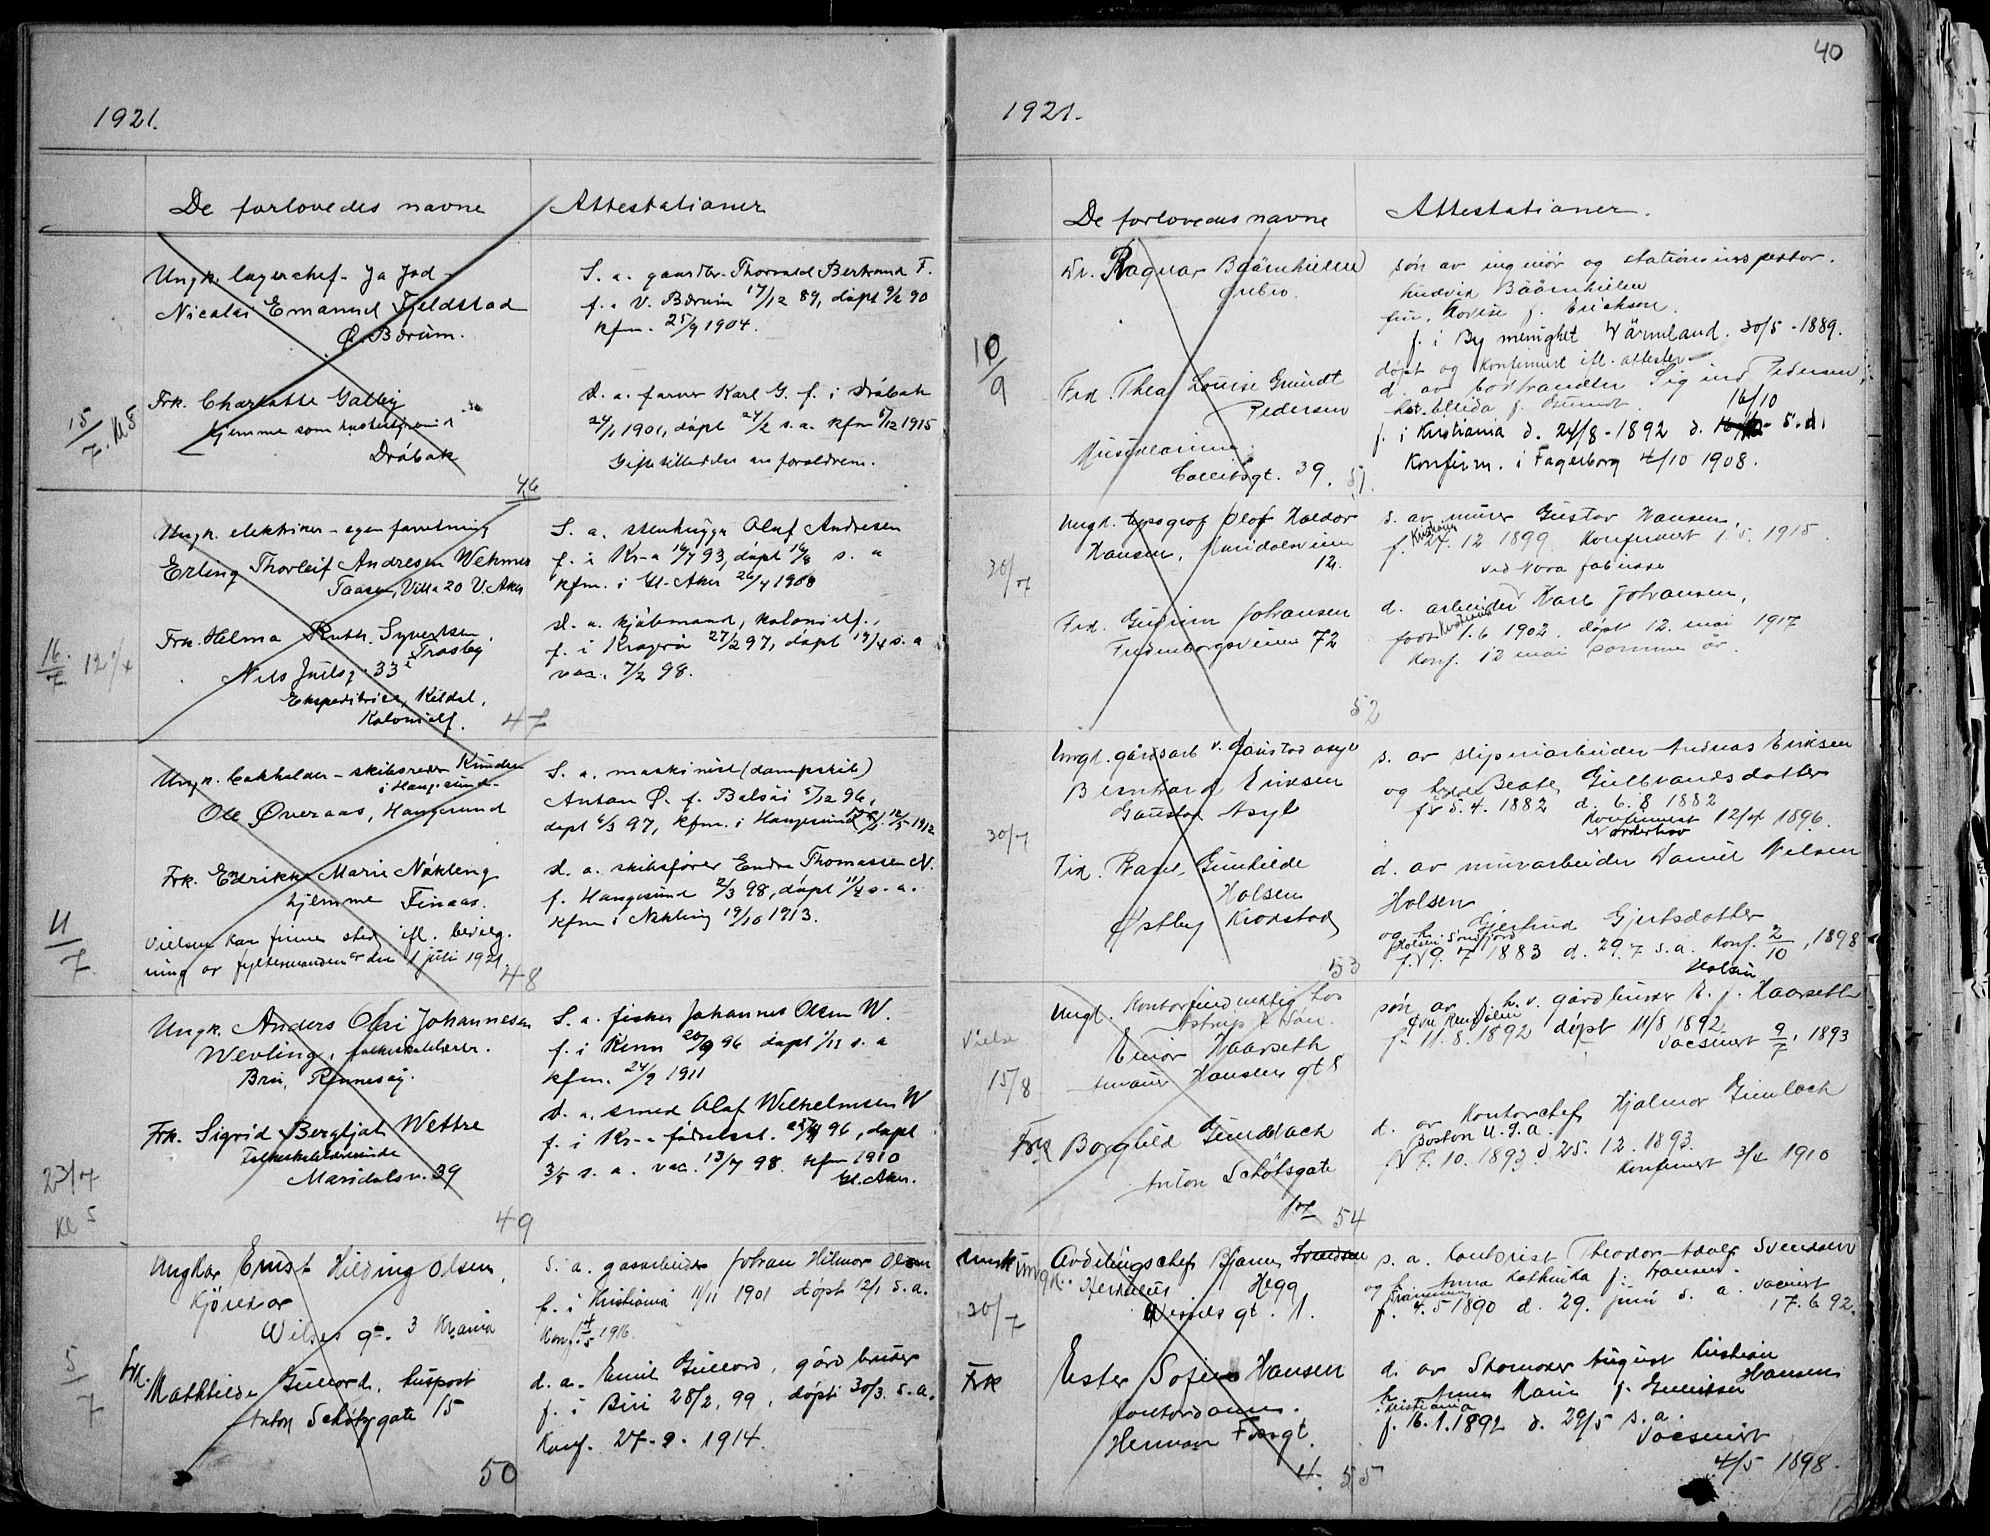 40
1921.
De forlovedes navne
Attestationer
15/7. kl 5
Ungk. lagerchef
Nicolai Emanuel Fjeldstad
Ø. Bærum.
Frk. Charlotte Galby
hjemme som
Drøbak
46
S. a. gaardbr. Thorvald Bertrand F.
f. i V. Bærum 17/12 89, døpt 9/2 90
kfm. 25/9 1904.
d. a. farver Karl G. f. i Drøbak
24/1 1901, døpt 24/2 s. a. kfm 5/12 1915
Giftetilladelse av forældrene.
16/7 12
Ungk. elektriker - egen forretning
Erling Thorleif Andresen Wekmer
Taasen, Villa 20 V. Aker
Frk. Helma Ruth Syvertsen
Træsby
Nils Juelsg. 33
Ekspeditrice, Kildal,
Kolonialf.
47
S. a. stenhugger Olaf Andresen
f. i Kr-a 16/7 93, døpt 16/8 s. a
kfm. i Gl. Aker 26/4 1908
d. a. kjøbmand, kolonialf.,
f. i Kragerø 27/2 97, døpt 19/4 s. a
vac. 7/2 98.
11/7
Ungk. bokholder - skibsreder Knudsen
i Haugesund
Ole Øveraas, Haugesund
Frk. Endrikke Marie Nøkling
hjemme Finaas.
Vielsen kan finne sted ifl. bevilg-
ning av fylkesmanden av den 1 juli 1921
48
S. a. maskinist (dampskib)
Anton Ø. f. Balsøi 5/12 96,
døpt 6/3 97, kfm. i Haugesund 12/5 1912
d. a. skibsfører Endre Thomassen N.
f. Haugesund 2/3 98, døpt 11/4 s. a.
kfm i Nøkling 19/10 1913.
23/7
kl 5
Ungk. Anders Olai Johannesen
Wevling, folkeskolelærer.
Bru, Rennesøy.
Frk. Sigrid Bergljot Wettre
Folkeskolelærerinde
Maridalsv. 39
49
S. a. fisker Johannes Olsen W.
f. i Kinn 20/9 96 døpt 1/11 s. a
kfm. 24/9 1911
d. a. smed Olaf Wilhelmsen W
f. i Kr-a fødselsst. 25/4 96, døpt
3/5 s. a. vac. 13/7 98. kfm 1910
Gl. Aker.
5/7
Ungkar Ernst Hilding Olsen,
Kjører av
Wilses gt. 3 Krania
Frk. Mathilde Gullord, huspost
Anton Schøtzgate 15
50
S. a. gasarbeider Johan Hilmar Olsen
f. i Kristiania 11/11 1901 døpt 12/1 s. a.
Konf. 1916.
d. a. Emil Gullord, gårdbruker
f. i Biri 28/2. 99, døpt 30/3. s. a.
Konf. 27-9. 1914.
1921.
De forlovedes navne
Attestationer.
10/9
Dr. Ragnar Bäärnhielm
Örebro.
Frd. Thea Louise Gundt
Pedersen
Collettsgt. 39.
51.
søn av ingeniør og stationsinspektør.
Ludvig Bäärnhielm
fru. Lovise f. Erickson.
f. i By menighet Wärmland. 30/5 - 1889.
døpt og konfirmert ifl. attester
d. av Sigurd Pedersen,
f. Gundt. 16/10
f. i Kristiania d. 24/8 - 1892 d. s. d.
Konfirm. i Fagerborg 4/10 1908.
30/7
Ungk. typograf Olof Haldor
Hansen, Maridalsveien
12.
Frd. Gudrun Johansen
Fredensborgsveien 72
52
s. av murer Gustav Hansen,
f. Kristiania 27. 12 1899 Konfirmert 1. 5. 1915
ved Nora fabrikk
d. arbeider Karl Johansen,
født Kristiania 1. 6 1902. døpt 12. mai 1917
Konf. 12 mai samme år.
30/7
Ungk. gårdsarb v. Gaustad asyl
Bernhard Eriksen
Gaustad Asyl
Frd. Ragna Gunhilde
Holsen
Østby Krodstad
53
s. av sliperiarbeider Andreas Eriksen
og hustru Beate Gulbrandsdatter
f. 5. 4. 1882 d. 6. 8 1882
Konfirmert 12/4 1896.
Norderhov
d. av murarbeider Daniel Nilsen
Holsen
og h. Gjertrud Gjertsdatter
Holsen Søndfjord
f. 9. 7 1883 d. 29. 7 s. a. Konf. 2/10, 1898
Holsen
Vielse
15/8
Ungk. Kontorfuldmektig hos
Astrup & Søn.
Einar Haarseth
Amaus Hansens gt 8
Frk Borghild Gundlach
Anton Schøtsgate
54
søn av f. h. v. gårdbruker E. J. Haarseth
Øvre Rendalen
f. 11. 8. 1892 døpt 11/8 1892
Vacsinert 9/7, 1893
d. av Kontorchef Hjalmar Gundlach
Boston U.S.A.
f. 7. 10. 1893 d. 25. 12. 1893.
Konfirmert 3/4 1910
30/7
Ungk. Avdelingschef Bjarne Svendsen
Hegg
Wessels gt. 1.
Frk Ester Sofie Hansen
kontordame.
Herman Fossgt.
4. 55
s. a. Kontorist Theodor Adolf Svendsen
og h. Anna Kathrika f. Hansen.
Drammen
f. 4. 5 1890 d. 29. juni s. a. vacinert
17. 6 92.
d. av Skomaker August Kristian
Hansen
h. Anna Marie f. Gulliksen
i Kristiania
f. 16. 1. 1892 d. 29/5 s. a.
Vacsinert
4/5 1898.